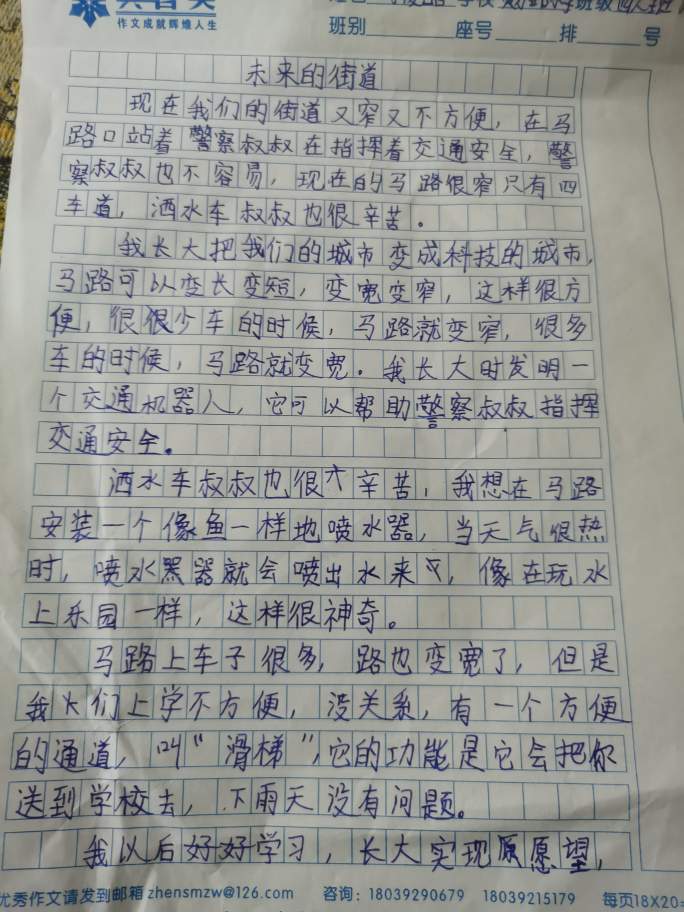 作文成就辉煌人生
班别 座号 排 号
未来的街道
现在我们的街道又窄又不方便，在马
路口站着警察叔叔在指挥着交通安全，警
察叔叔也不容易，现在的马路很窄只有四
车道，洒水车叔叔也很辛苦。
我长大把我们的城市变成科技的城市，
马路可以变长变短，变宽变窄，这样很方
便，很很少车的时候，马路就变窄，很多
车的时候，马路就变宽。我长大时发明一
个交通机器人，它可以帮助警察叔叔指挥
交通安全。
洒水车叔叔也很辛苦，我想在马路
安装一个像鱼一样地喷水器，当天气很热
时，喷水器就会喷出水来，像在玩水
上乐园一样，这样很神奇。
马路上车子很多，路也变宽了，但是
我们上学不方便，没关系，有一个方便
的通道，叫“滑梯”，它的功能是它会把你
送到学校去，下雨天没有问题。
我以后好好学习，长大实现愿望，
优秀作文请发到邮箱zhensmzw@126.com 咨询：18039290679 18039215179 每页18X20=